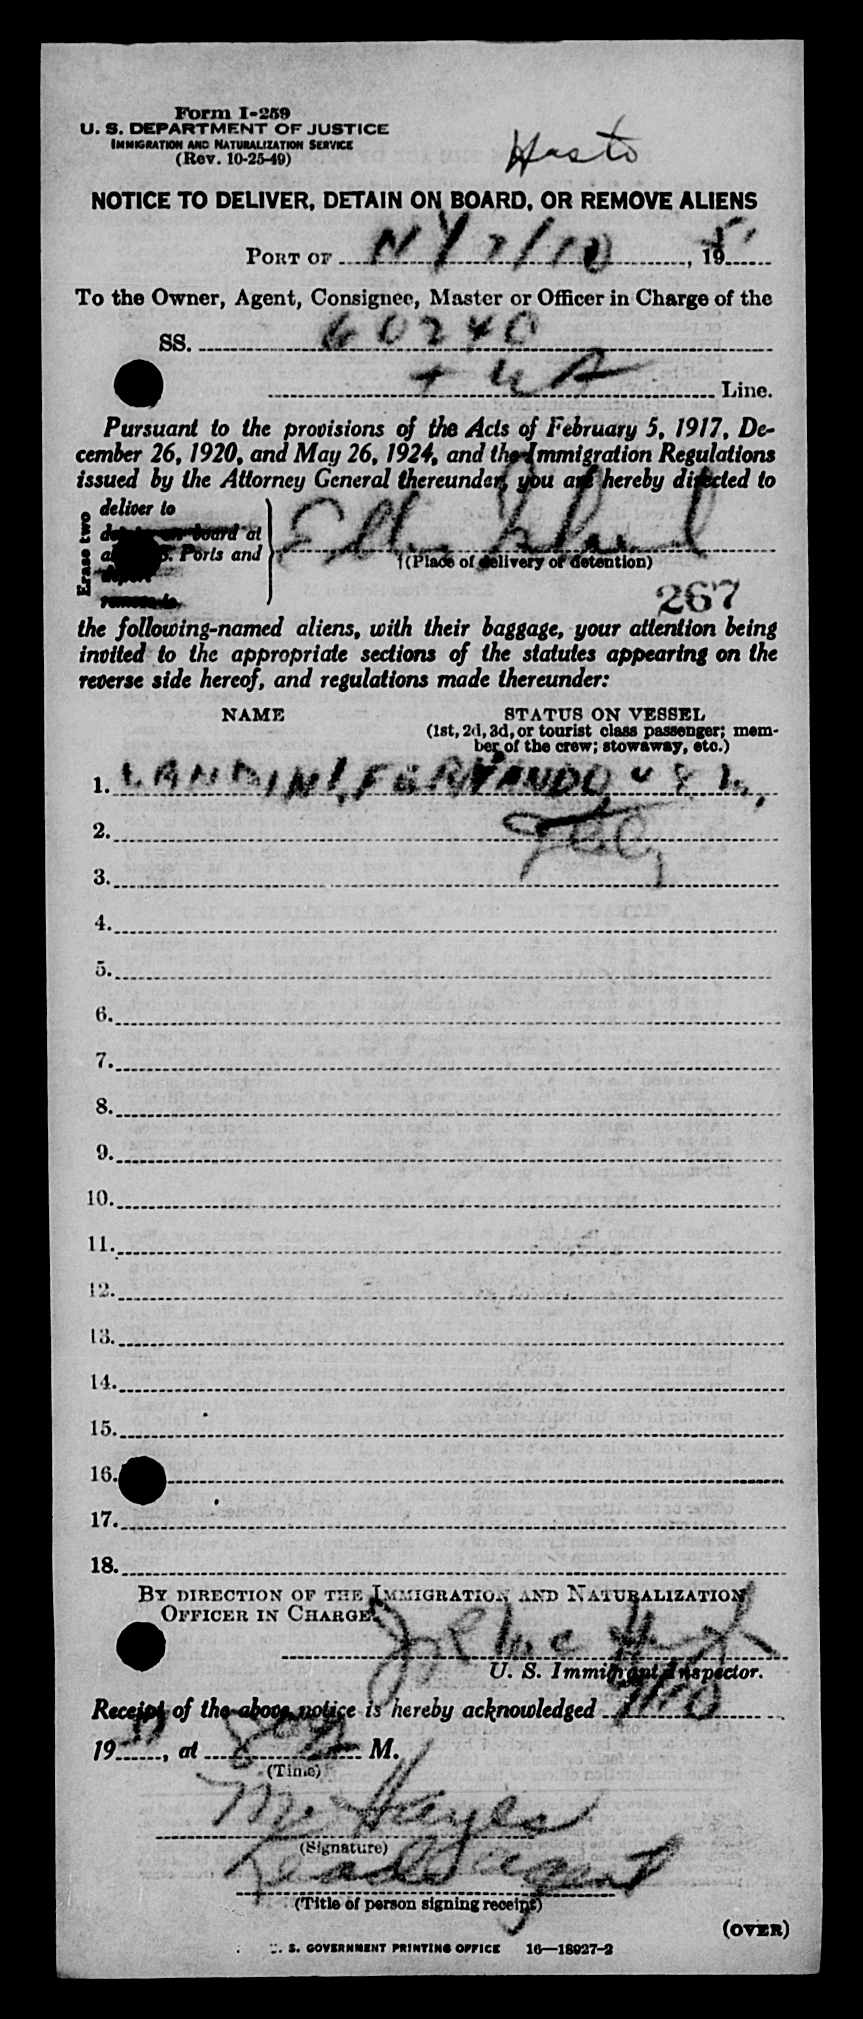 Form I-259
U. S. DEPARTMENT OF JUSTICE
IMMIGRATION AND NATURALIZATION SERVICE
(Rev. 10-25-49)
NOTICE TO DELIVER, DETAIN ON BOARD, OR REMOVE ALIENS
PORT OF NY 7/10, 1951
To the Owner, Agent, Consignee, Master or Officer in Charge of the
SS. 60240
Line.
Pursuant to the provisions of the Acts of February 5, 1917, De-
cember 26, 1920, and May 26, 1924, and the Immigration Regulations
issued by the Attorney General thereunder, you are hereby directed to
Erase two
deliver to
detain on board at
Ports and
deport
remove to
Ellis Island
(Place of delivery or detention)
267
the following-named aliens, with their baggage, your attention being
invited to the appropriate sections of the statutes appearing on the
reverse side hereof, and regulations made thereunder:
NAME STATUS ON VESSEL
(1st, 2d, 3d, or tourist class passenger; mem-
ber of the crew; stowaway, etc.)
1. LANDINI, FERNANDO
2.
3.
4.
5.
6.
7.
8.
9.
10.
11.
12.
13.
14.
15.
16.
17.
18.
BY DIRECTION OF THE IMMIGRATION AND NATURALIZATION
OFFICER IN CHARGE.
U. S. Immigrant Inspector.
Receipt of the above notice is hereby acknowledged 7/10
19 51, at M.
(Time)
M. Hayes
(Signature)
agent
(Title of person signing receipt)
(OVER)
U. S. GOVERNMENT PRINTING OFFICE 16—18927-2